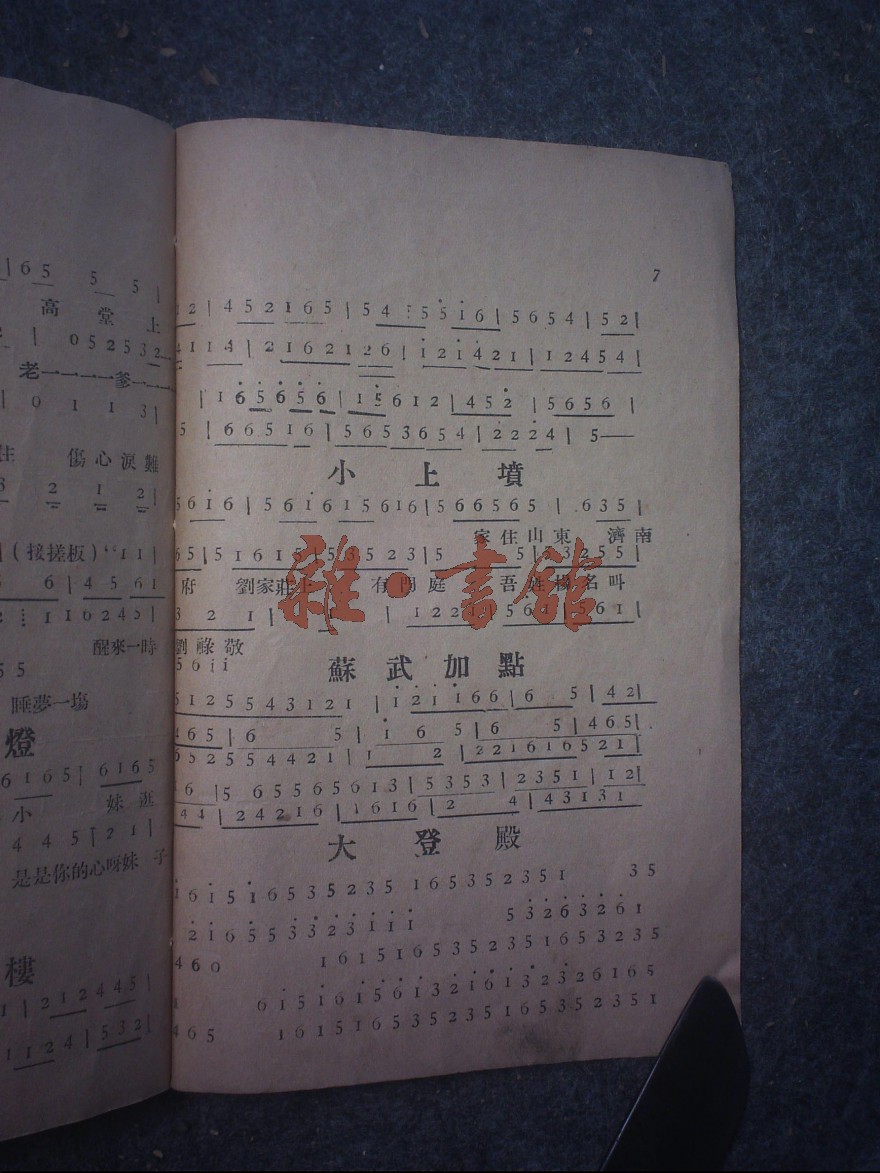 165 5 5|
高 堂 上
0 5 2 5 3 2
老一一一一爹一一
| 0 1 1 3|
傷心淚難
3 2 1 2|
(接搓板)
6 | 4 5 6 1
1 1 0 2 4 5|
醒來一時
5 5
睡夢一塲
燈
6 1 6 5| 6 1 6 5
小 妹 逛
4 4 5| 2 1|
是是你的心呀妹 子
樓
1| 2 1 2 4 4 5|
1 1 2 4| 5 3 2|
7
1 2 | 4 5 2 1 6 5 | 5 4 5 5 5 i 6 | 5 6 5 4 | 5 2|
4 1 1 4 | 2 1 6 2 1 2 6 | i 2 i 4 2 1 | 1 2 4 5 4 |
| 1 6 5 6 5 6 | 1 5 6 1 2 | 4 5 2 | 5 6 5 6 |
5 | 6 6 5 1 6 | 5 6 5 3 6 5 4 | 2 2 2 4 | 5—
小 上 墳
5 6 i 6 | 5 6 i 6 1 5 6 1 6 | 5 6 6 5 6 5 | . 6 3 5 |
家 住 山 東 濟 南
6 5 | 5 1 6 1 5 | 5 3 5 2 3 | 5 5 | 5 3 2 5 5 |
府 劉家莊上 有門庭 吾姓 名叫
3 2 1 | 1 | 1 2 2 1 5 6 5 6 1 |
劉祿敬
5 6 i i
蘇 武 加 點
5 1 2 5 5 4 3 1 2 1 | i 2 i i 6 6 | 6 5 | 4 2 |
4 6 5 | 6 5 | i 6 5 | 6 5 | 4 6 5 |
6 5 2 5 5 4 4 2 1 | 1 2 | 2 2 1 6 1 6 5 2 1 |
6 | 5 6 5 5 6 5 6 1 3 | 5 3 5 3 | 2 3 5 1 | 1 2 |
4 4 | 2 4 2 1 6 | 1 6 1 6 | 2 4 | 4 3 1 3 1
大 登 殿
i 6 i 5 i 6 5 3 5 2 3 5 1 6 5 3 5 2 3 5 1 3 5
2 1 6 5 5 3 3 2 3 1 1 1 5 3 2 6 3 2 6 1
4 6 0 1 6 1 5 1 6 5 3 5 2 3 5 1 6 5 3 2 3 5
1 6 i 5 i 6 i 5 6 i 3 2 i 6 i 3 2 3 2 6 1 6 5
4 6 5 1 6 1 5 1 6 5 3 5 2 3 5 1 6 5 3 5 2 3 5 1
雜·書館